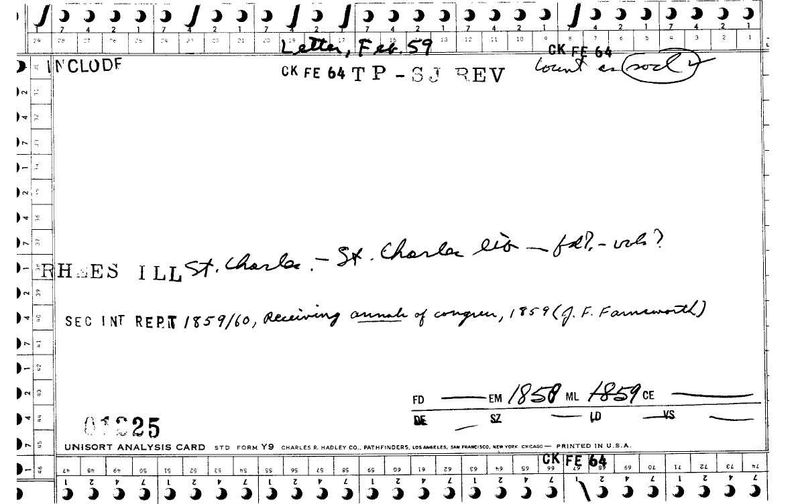 Letter, Feb. 59
CK FE 64
INCLODE
CK FE 64 TP-SJ REV
Count as socl
RHEES ILL St. Charles. - St. Charles lib - fd?, - vols?
SEC INT REPT 1859/60, Receiving annals of congress, 1859 (J. F. Farnsworth)
FD — EM 1858 ML 1859 CE —
DE — SZ — LD — VS —
01325
UNISORT ANALYSIS CARD STD FORM Y9 CHARLES R. HADLEY CO., PATHFINDERS, LOS ANGELES, SAN FRANCISCO, NEW YORK CHICAGO — PRINTED IN U.S.A.
CK FE 64